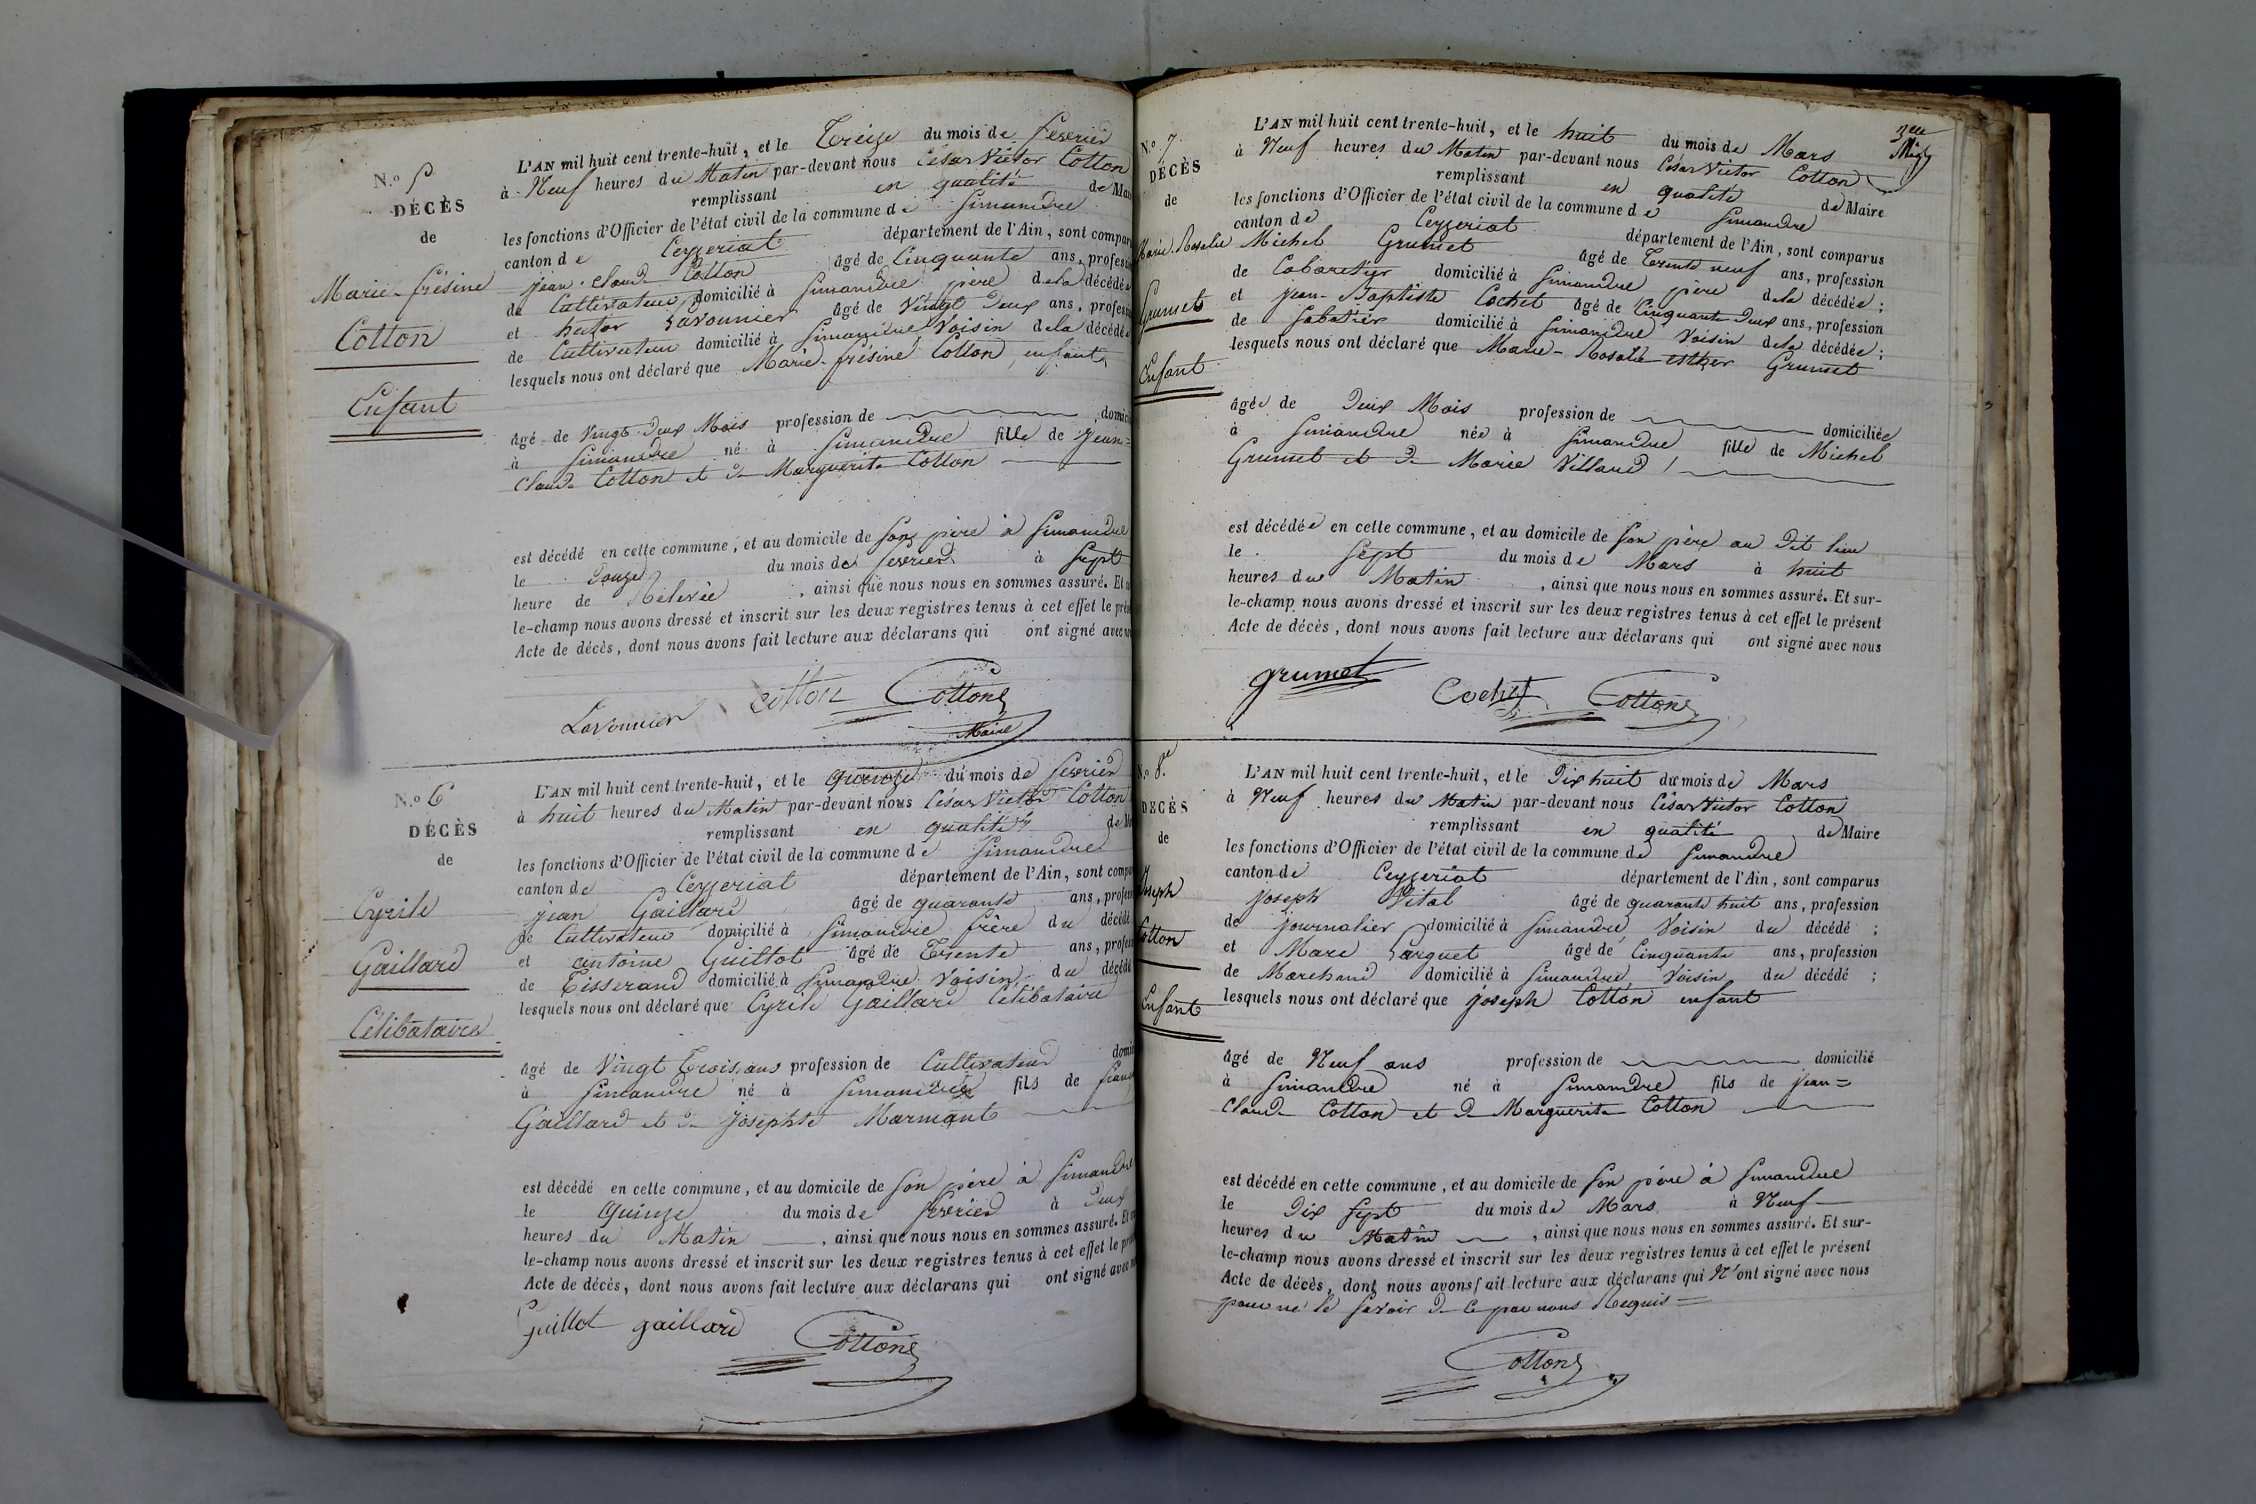 N.o 5
DÉCÈS
de
Marie-frésine
Cotton
Enfant
L'AN mil huit cent trente-huit, et le Treize du mois de fevrier
à Neuf heures du Matin par-devant nous César Victor Cotton
remplissant en qualité de Mai
les fonctions d'Officier de l'état civil de la commune de Simandre
canton de Ceyzeriat département de l'Ain, sont compar
jean-claude Cotton âgé de Cinquante ans, professi
de Cultivateur domicilié à Simandre père de la décédée
et hector Lavounier âgé de Vingt Deux ans, profess
de Cultivateur domicilié à Simandre, Voisin de la décédée
lesquels nous ont déclaré que Marie-frésine Cotton, enfant,
âgé de Vingt-Deux Mois profession de domici
à Simandre né à Simandre fille de jean=
Claude Cotton et de Marguerite Cotton
est décédé en cette commune, et au domicile de son père à Simandre
le Douze du mois de fevrier à Sept
heure de Relevée, ainsi que nous nous en sommes assuré. Et
le-champ nous avons dressé et inscrit sur les deux registres tenus à cet effet le prés
Acte de décès, dont nous avons fait lecture aux déclarans qui ont signé avec
Lavounier Cotton Cotton
Maire
N.o 6
DÉCÈS
de
Cyrile
Gaillard
Célibataire
L'AN mil huit cent trente-huit, et le du mois de fevrier
à huit heures du Matin par-devant nous César Victor Cotton
remplissant en qualité de M
les fonctions d'Officier de l'état civil de la commune de Simandre
canton de Ceyzeriat département de l'Ain, sont compa
jean Gaillard âgé de quarante ans, profess
de Cultivateur domicilié à Simandre frère du décédé
et antoine Guillot âgé de Trente ans, profess
de Tisserand domicilié à Simandre, Voisin, du décédé
lesquels nous ont déclaré que Cyrile Gaillard Célibataire
âgé de Vingt Trois ans profession de Cultivateur domi
à Simandre né à Simandre fils de
Gaillard et de Josephte Marmont
est décédé en cette commune, et au domicile de son père à Simandre
le Quinze du mois de fevrier à Deux
heures du Matin, ainsi que nous nous en sommes assuré. Et
le-champ nous avons dressé et inscrit sur les deux registres tenus à cet effet le prés
Acte de décès, dont nous avons fait lecture aux déclarans qui ont signé avec
Guillot gaillard Cotton
N.o 7.
DÉCÈS
de
Marie-Rosalie
Grumet
Enfant
L'AN mil huit cent trente-huit, et le huit du mois de Mars
à Neuf heures du Matin par-devant nous César Victor Cotton
remplissant en qualité de Maire
les fonctions d'Officier de l'état civil de la commune de Simandre
canton de Ceyzeriat département de l'Ain, sont comparus
Michel Grumet âgé de Trente neuf ans, profession
de Cabaretier domicilié à Simandre père de la décédée;
et jean-Baptiste Cochet âgé de Cinquante Deux ans, profession
de Sabotier domicilié à Simandre Voisin de la décédée;
lesquels nous ont déclaré que Marie-Rosalie esther Grumet
âgée de Deux Mois profession de domiciliée
à Simandre née à Simandre fille de Michel
Grumet et de Marie Villard
est décédée en cette commune, et au domicile de son père au Dit lieu
le Sept du mois de Mars à huit
heures du Matin, ainsi que nous nous en sommes assuré. Et sur-
le-champ nous avons dressé et inscrit sur les deux registres tenus à cet effet le présent
Acte de décès, dont nous avons fait lecture aux déclarans qui ont signé avec nous
grumet Cochet Cotton
N.o 8.e
DÉCÈS
de
Joseph
Cotton
Enfant
L'AN mil huit cent trente-huit, et le Dix huit du mois de Mars
à Neuf heures du Matin par-devant nous César Victor Cotton
remplissant en qualité de Maire
les fonctions d'Officier de l'état civil de la commune de Simandre
canton de Ceyzeriat département de l'Ain, sont comparus
Joseph Vital âgé de quarante huit ans, profession
de journalier domicilié à Simandre, Voisin du décédé;
et Marc Larguet âgé de Cinquante ans, profession
de Marchand domicilié à Simandre, Voisin, du décédé;
lesquels nous ont déclaré que joseph Cotton enfant
âgé de Neuf ans profession de domicilié
à Simandre né à Simandre fils de jean=
Claude Cotton et de Marguerite Cotton
est décédé en cette commune, et au domicile de son père à Simandre
le Dix Sept du mois de Mars à Neuf
heures du Matin, ainsi que nous nous en sommes assuré. Et sur-
le-champ nous avons dressé et inscrit sur les deux registres tenus à cet effet le présent
Acte de décès, dont nous avons fait lecture aux déclarans qui N'ont signé avec nous
pour ne le savoir de ce par nous Requis=
Cotton